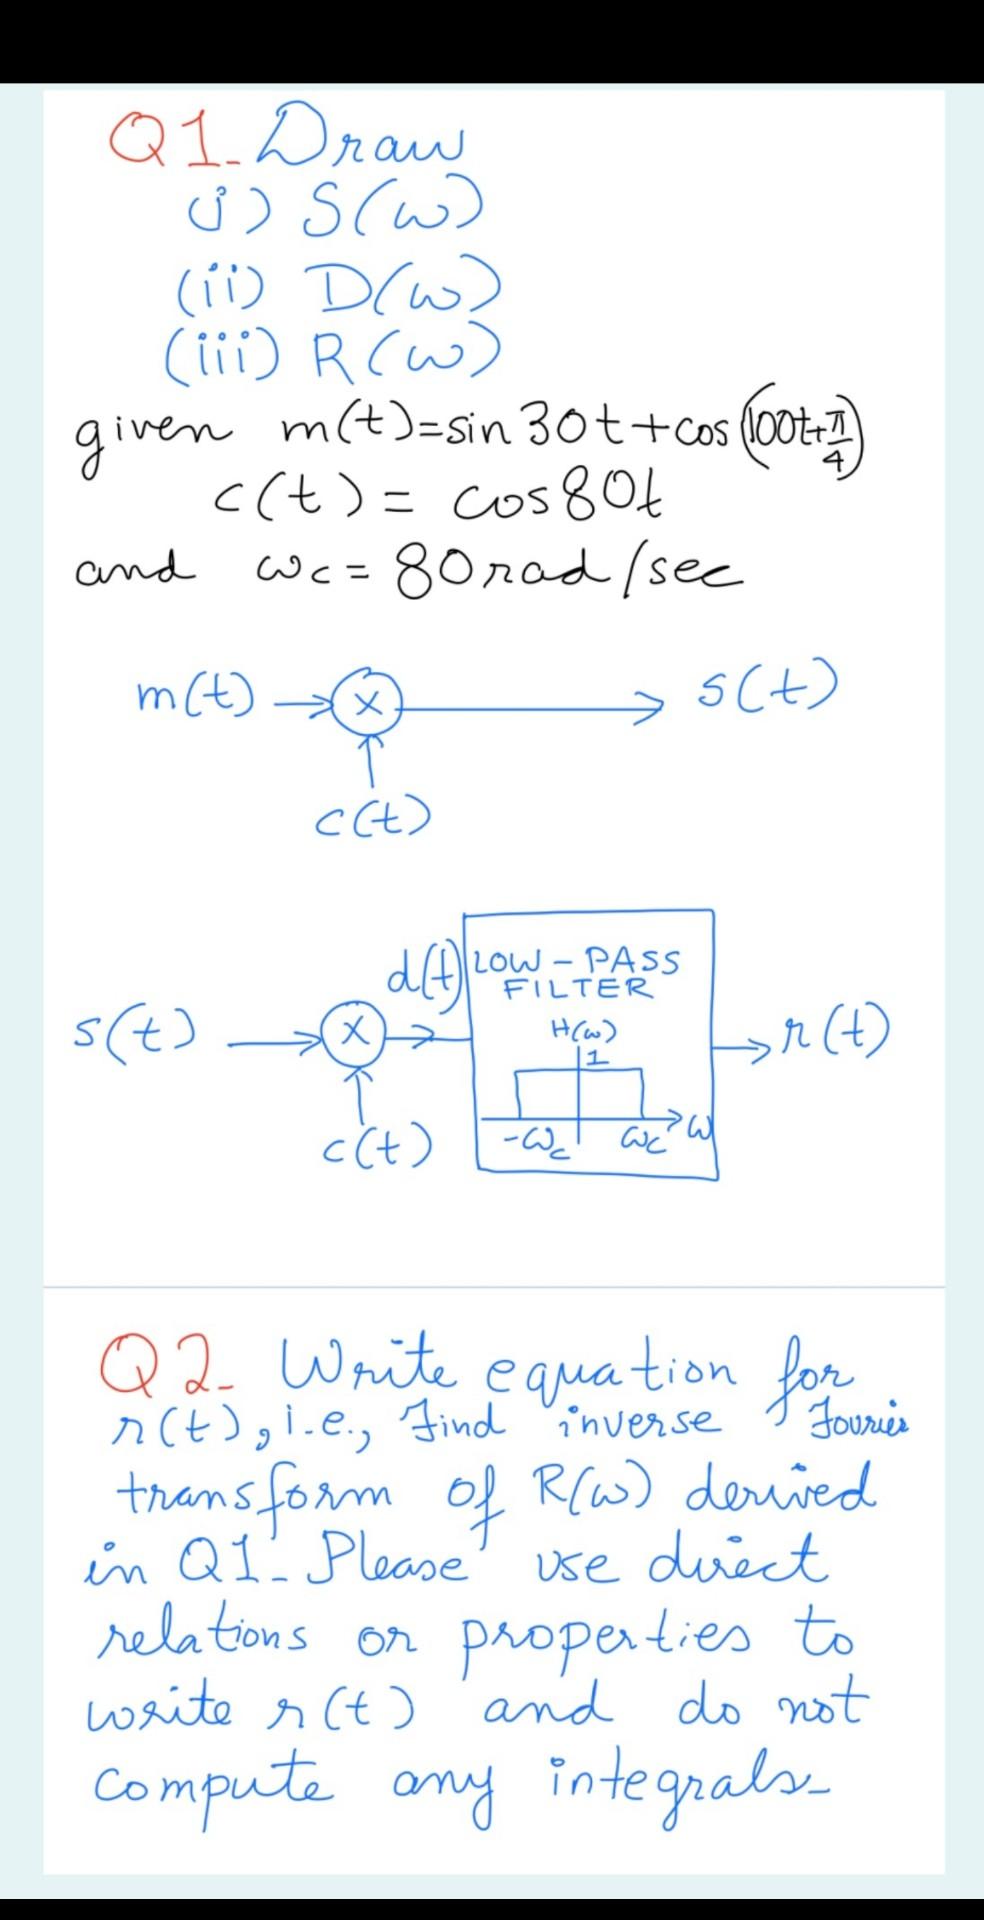 Q1. Draw
(i) S(ω)
(ii) D(ω)
(iii) R(ω)
given m(t)=sin30t+cos(100t+π/4)
c(t) = cos80t
and ωc = 80rad/sec
m(t) → X → s(t)
c(t)
d(t) LOW-PASS
FILTER
H(ω)
1
s(t) → X → r(t)
-ωc ωc ω
c(t)
Q2. Write equation for
r(t), i.e., find inverse Fourier
transform of R(ω) derived
in Q1. Please use direct
relations or properties to
write r(t) and do not
compute any integrals.